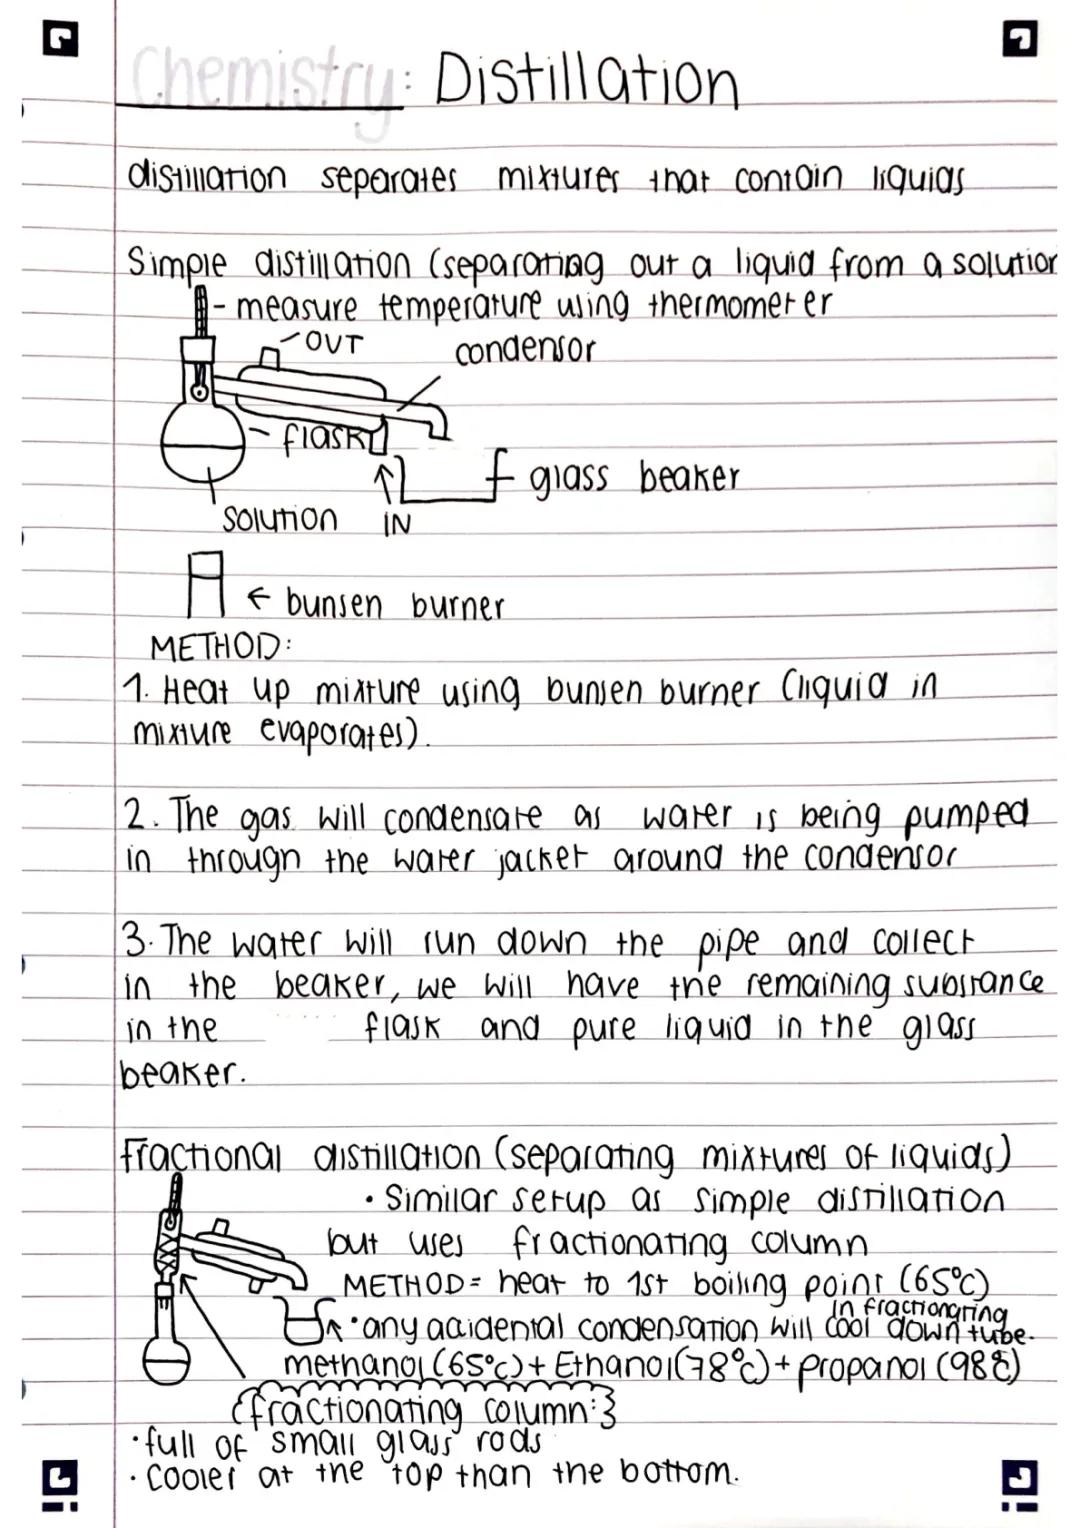 Chemistry: Distillation
distillation separates mixtures that contain liquids
Simple distillation (separating out a liquid from a solution
- measure temperature using thermometer
OUT
condensor
- flask
glass beaker
solution
IN
← bunsen burner
METHOD:
1. Heat up mixture using bunsen burner (liquid in
mixture evaporates).
2. The gas will condensate as water is being pumped
in through the water jacket around the condensor
3. The water will run down the pipe and collect
in the beaker, we will have the remaining substance
in the flask and pure liquid in the glass
beaker.
Fractional distillation (separating mixtures of liquids)
• Similar setup as simple distillation
but uses fractionating column
METHOD= heat to 1st boiling point (65°C)
in fractionating
• any accidental condensation will cool down tube.
methanol (65°C) + Ethanol (78°C) + propanol (98°C)
{fractionating column:}
• full of small glass rods
• cooler at the top than the bottom.